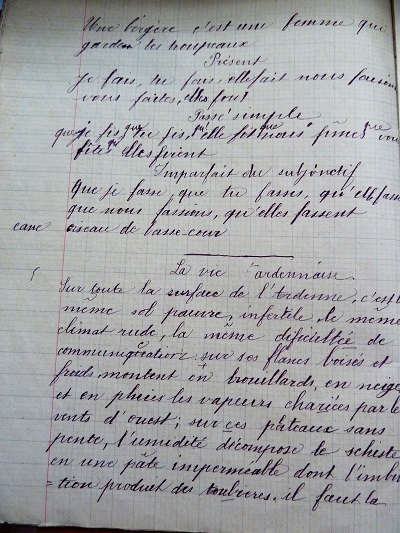 Une bergère c'est une femme qui
garden les troupeaux
Présent
je fais, tu fais, elle fait nous faisons
vous faites, elles font
Passé simple
que je fis, que tu fis, qu'elle fit que nous fîmes que vous
fîtes qu elles firent
Imparfait du subjonctif
Que je fasse, que tu fasses, qu'elle fasse
que nous fassions, qu'elles fassent
cane oiseau de basse-cour
La vie ardennaise
Sur toute la surface de l'Ardenne, c'est le
même sol pauvre, infertile, le même
climat rude, la même difficultée de
communication sur ses flancs boisés et
froids, montent en brouillards, en neige
et en pluies les vapeurs chariées par les
vents d'ouest; sur ces plateaux sans
pente, l'umidité décompose le schiste
en une pâte imperméable dont l'imbi
=tion produit des toubières. il faut la